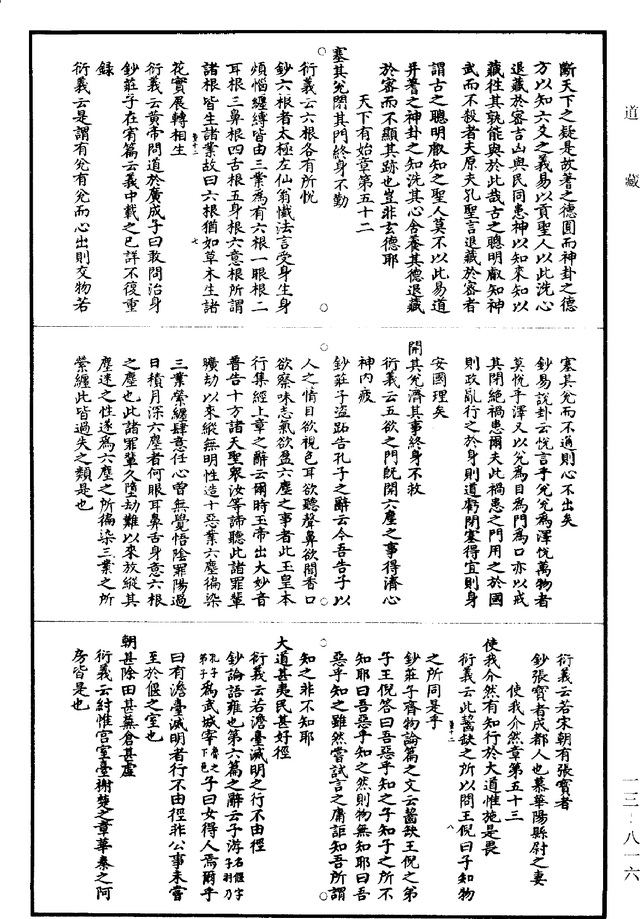 道藏
斷天下之疑是故蓍之德圓而神卦之德
方以知六爻之義易以貢聖人以此洗心
退藏於密吉凶與民同患神以知來知以
藏往其孰能與於此哉古之聰明叡知神
武而不殺者夫原夫孔聖言退藏於密者
謂古之聰明叡知之聖人莫不以此易道
弁蓍之神卦之知洗其心含養其德退藏
於密而不顯其跡也豈非玄德耶
天下有始章第五十二
塞其兊閉其門終身不勤
衍義云六根各有所恱
鈔六根者太極左仙翁懺法言受身生身
煩惱纏縛皆由三業為有六根一眼根二
耳根三鼻根四舌根五身根六意根所謂
諸根皆生諸業故曰六根猶如草木生諸
花實展轉相生
衍義云黃帝問道於廣成子曰敢問治身
鈔莊子在宥篇云義中載之已詳不復重
録
衍義云是謂有兊有兊而心出則交物若
塞其兊而不通則心不出矣
鈔易說卦云恱言乎兊兊為澤恱萬物者
莫恱乎澤又以兊為目為門為口亦以戒
其閉絕禍患爾夫此禍患之門用之於國
則政亂行之於身則道虧閉塞得宜則身
安國理矣
開其兊濟其事終身不救
衍義云五欲之門旣開六塵之事得濟心
神內疲
鈔莊子盜跖告孔子之辭云今吾告子以
人之情目欲視色耳欲聽聲鼻欲聞香口
欲察味志氣欲盈六塵之事者此玉皇本
行集經上章之辭云爾時玉帝出大妙音
普告十方諸天聖衆汝等諦聽此諸罪輩
曠劫以來縱無明性造十惡業六塵徧染
三業縈纏肆意任心曾無覺悟陰罪陽過
日積月深六塵者何眼耳鼻舌身意六根
之塵也此諸罪輩久墮劫難以來放縱其
塵迷之性遂為六塵之所徧染三業之所
縈纏此皆過失之類是也
衍義云若宋朝有張寳者
鈔張寳者成都人也慕華陽縣尉之妻
使我介然章第五十三
使我介然有知行於大道惟施是畏
衍義云此齧缺之所以問王倪曰子知物
之所同是乎
鈔莊子齊物論篇之文云齧缺王倪之弟
子王倪答曰吾惡乎知之子知子之所不
知耶曰吾惡乎知之然則物無知耶曰吾
惡乎知之雖然嘗試言之庸詎知吾所謂
知之非不知耶
大道甚夷民甚好徑
衍義云若澹臺滅明之行不由徑
鈔論語雍也第六篇之辭云子游名偃字子游乃
孔子弟子為武城宰魯之下邑子曰女得人焉爾乎
曰有澹臺滅明者行不由徑非公事未嘗
至於偃之室也
朝甚除田甚蕪倉甚虛
衍義云紂惟宫室臺榭楚之章華秦之阿
房皆是也
一三-八一六